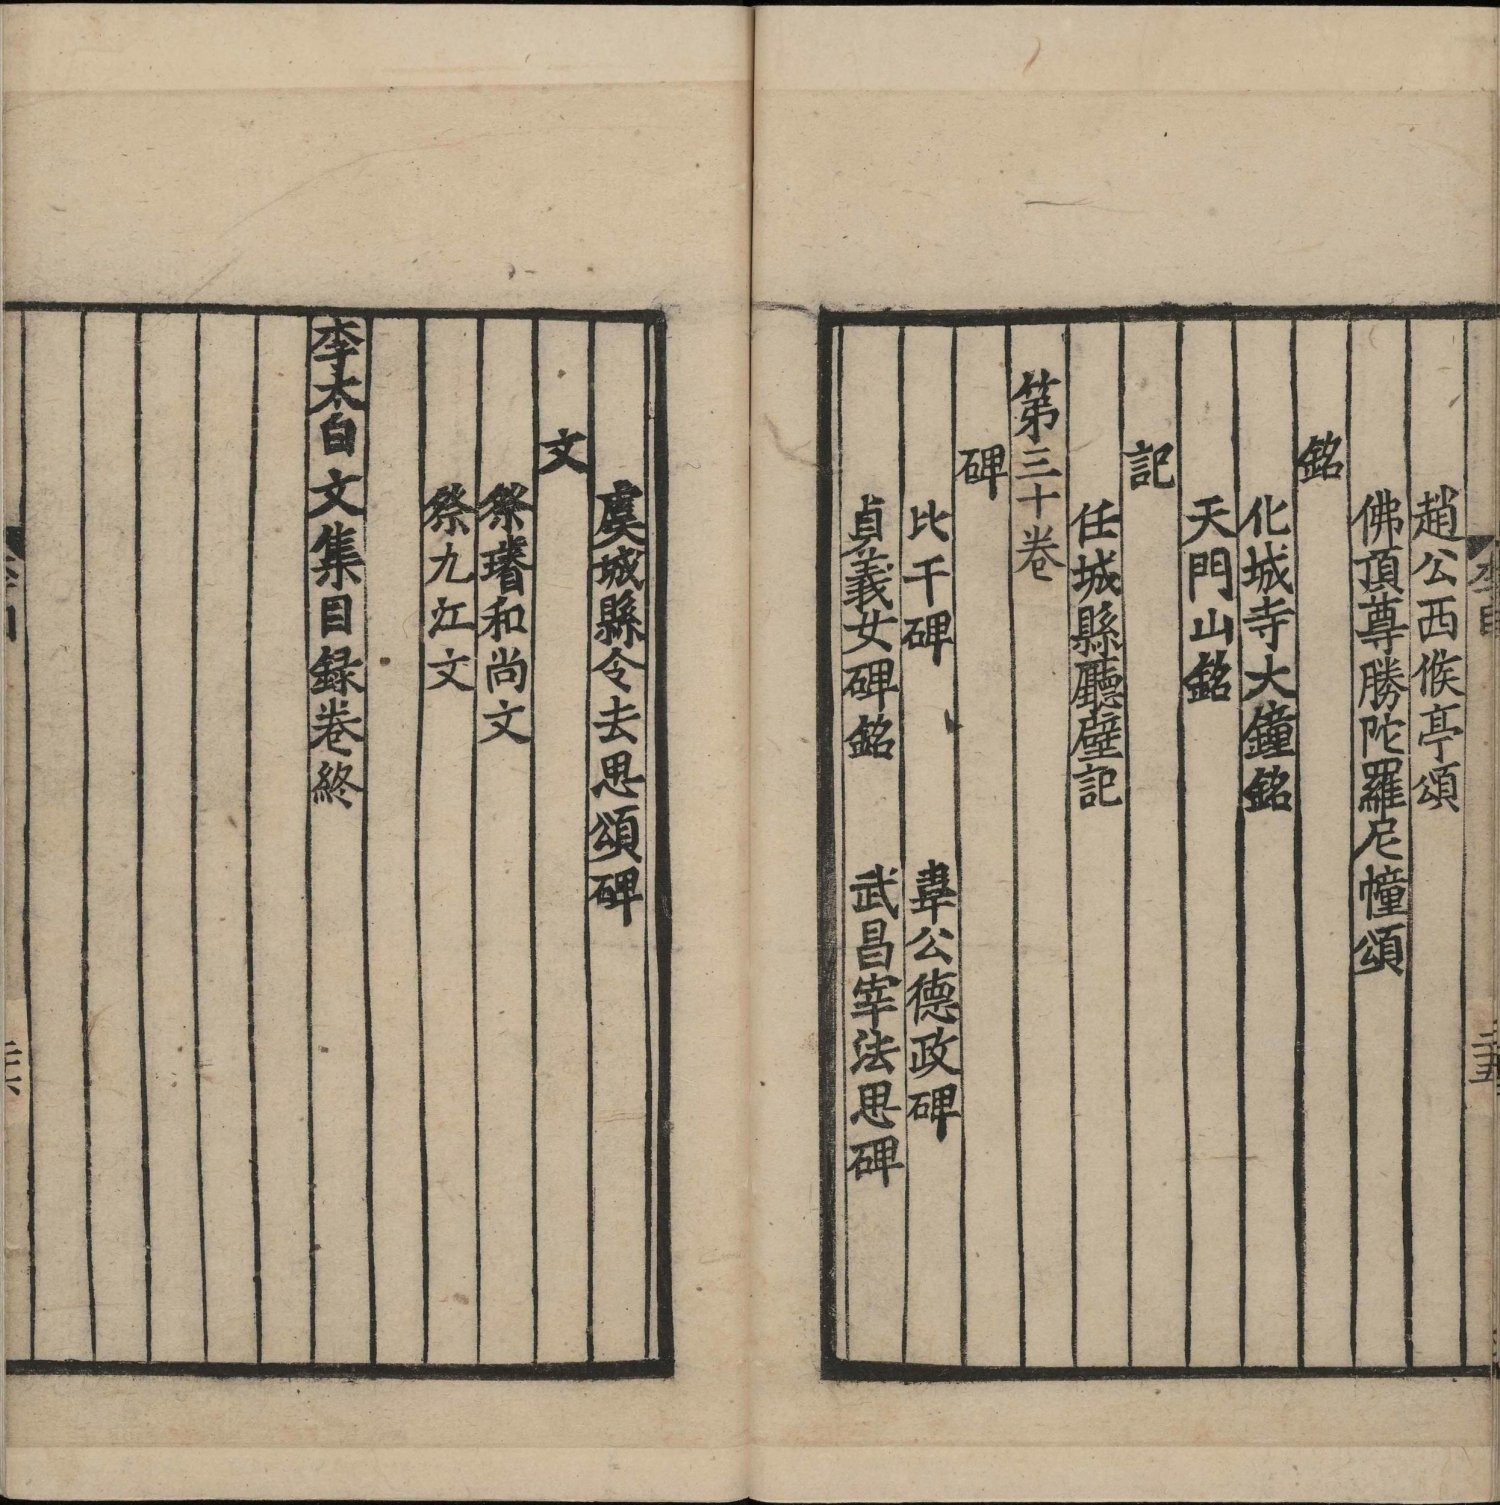 趙公西候亭頌
佛頂尊勝陀羅尼幢頌
銘
化城寺大鐘銘
天門山銘
記
任城縣廳壁記
第三十卷
碑
比干碑　韋公德政碑
貞義女碑銘　武昌宰法思碑
虞城縣令去思頌碑
文
祭璿和尚文
祭九江文
李太白文集目録卷終